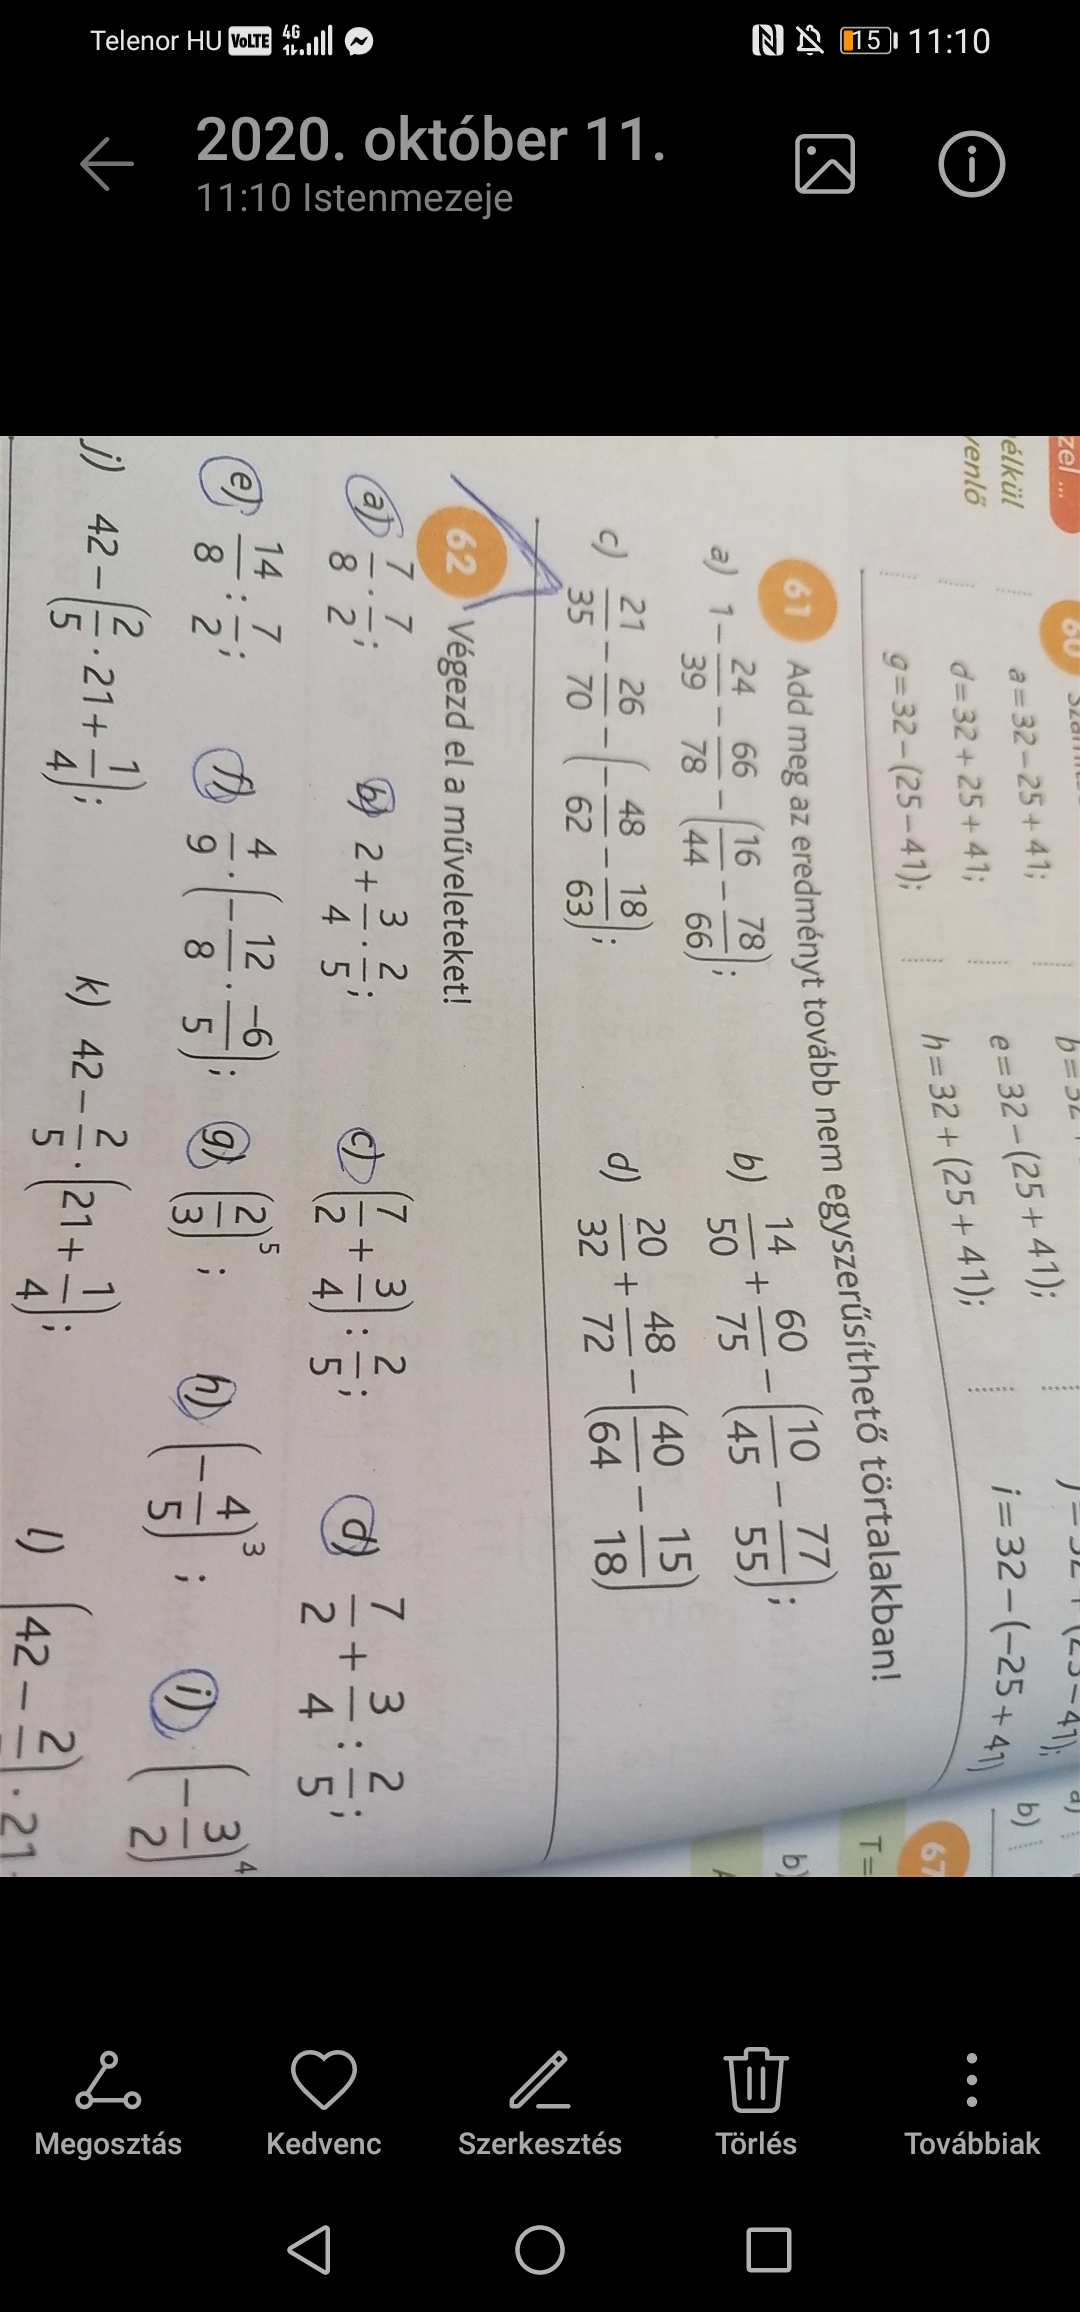 Telenor HU VoLTE 4G 15 11:10
2020. október 11.
11:10 Istenmezeje
zel ...
élkül
venlő
60
a=32−25+41;
d=32+25+41; e=32−(25+41); i=32−(−25+41)
g=32−(25−41); h=32+(25+41);
61 Add meg az eredményt tovább nem egyszerűsíthető törtalakban!
a) 1−24/39−66/78−(16/44−78/66); b) 14/50+60/75−(10/45−77/55);
c) 21/35−26/70−(−48/62−18/63); d) 20/32+48/72−(40/64−15/18)
62 Végezd el a műveleteket!
a) 7/8·7/2; b) 2+3/4·2/5; c) (7/2+3/4):2/5; d) 7/2+3/4:2/5;
e) 14/8:7/2; f) 4/9·(−12/8·−6/5); g) (2/3)⁵; h) (−4/5)³; i) (−3/2)⁴
j) 42−(2/5·21+1/4); k) 42−2/5·(21+1/4); l) (42−2/)·21
a)
b)
67
T=
b)
Megosztás Kedvenc Szerkesztés Törlés Továbbiak